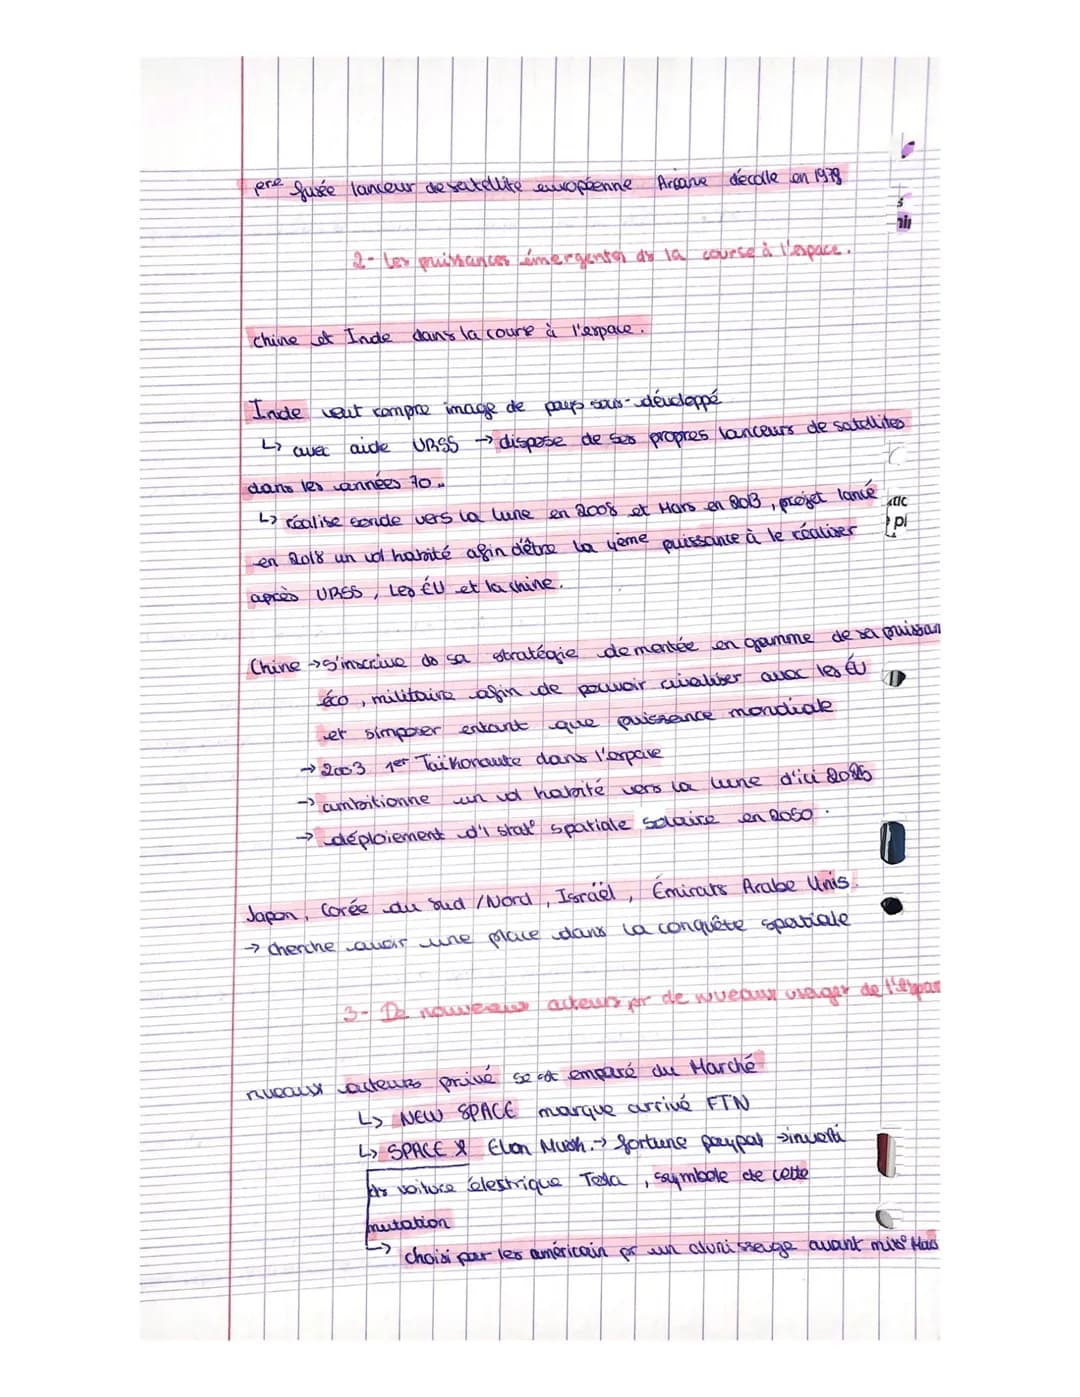 ère fusée lanceur de satellite européenne Ariane décolle en 1979
2- Les puissances émergentes ds la course à l'espace.
chine et Inde dans la course à l'espace.
Inde veut rompre image de pays sous-développé
↳ avec aide URSS → dispose de ses propres lanceurs de satellites
dans les années 70..
↳ réalise sonde vers la lune en 2008 et Mars en 2013, projet lancé
en 2018 un vol habité afin d'être la 4ème puissance à le réaliser
après URSS, Les ÉU et la chine.
Chine → s'inscrive ds sa stratégie de montée en gamme de sa puissan
éco, militaire afin de pouvoir rivaliser avec les ÉU
et simposer entant que puissance mondiale
→ 2003 1er Taïkonaute dans l'espace
→ ambitionne un vol habité vers la lune d'ici 2025
→ déploiement d'1 stat° spatiale solaire en 2050.
Japon, Corée du Sud / Nord, Israël, Émirats Arabe Unis.
→ cherche avoir une place dans la conquête spatiale
3- De nouveaux acteurs pr de nouveaux usages de l'espac
nveaux acteurs privé se st emparé du Marché
↳ NEW SPACE marque arrivé FTN
↳ SPACE X Elon Musk. → fortune paypal → investi
ds voiture électrique Tesla, symbole de cette
mutation
↳ choisi par les américain pr un alunissage avant miss° Mars